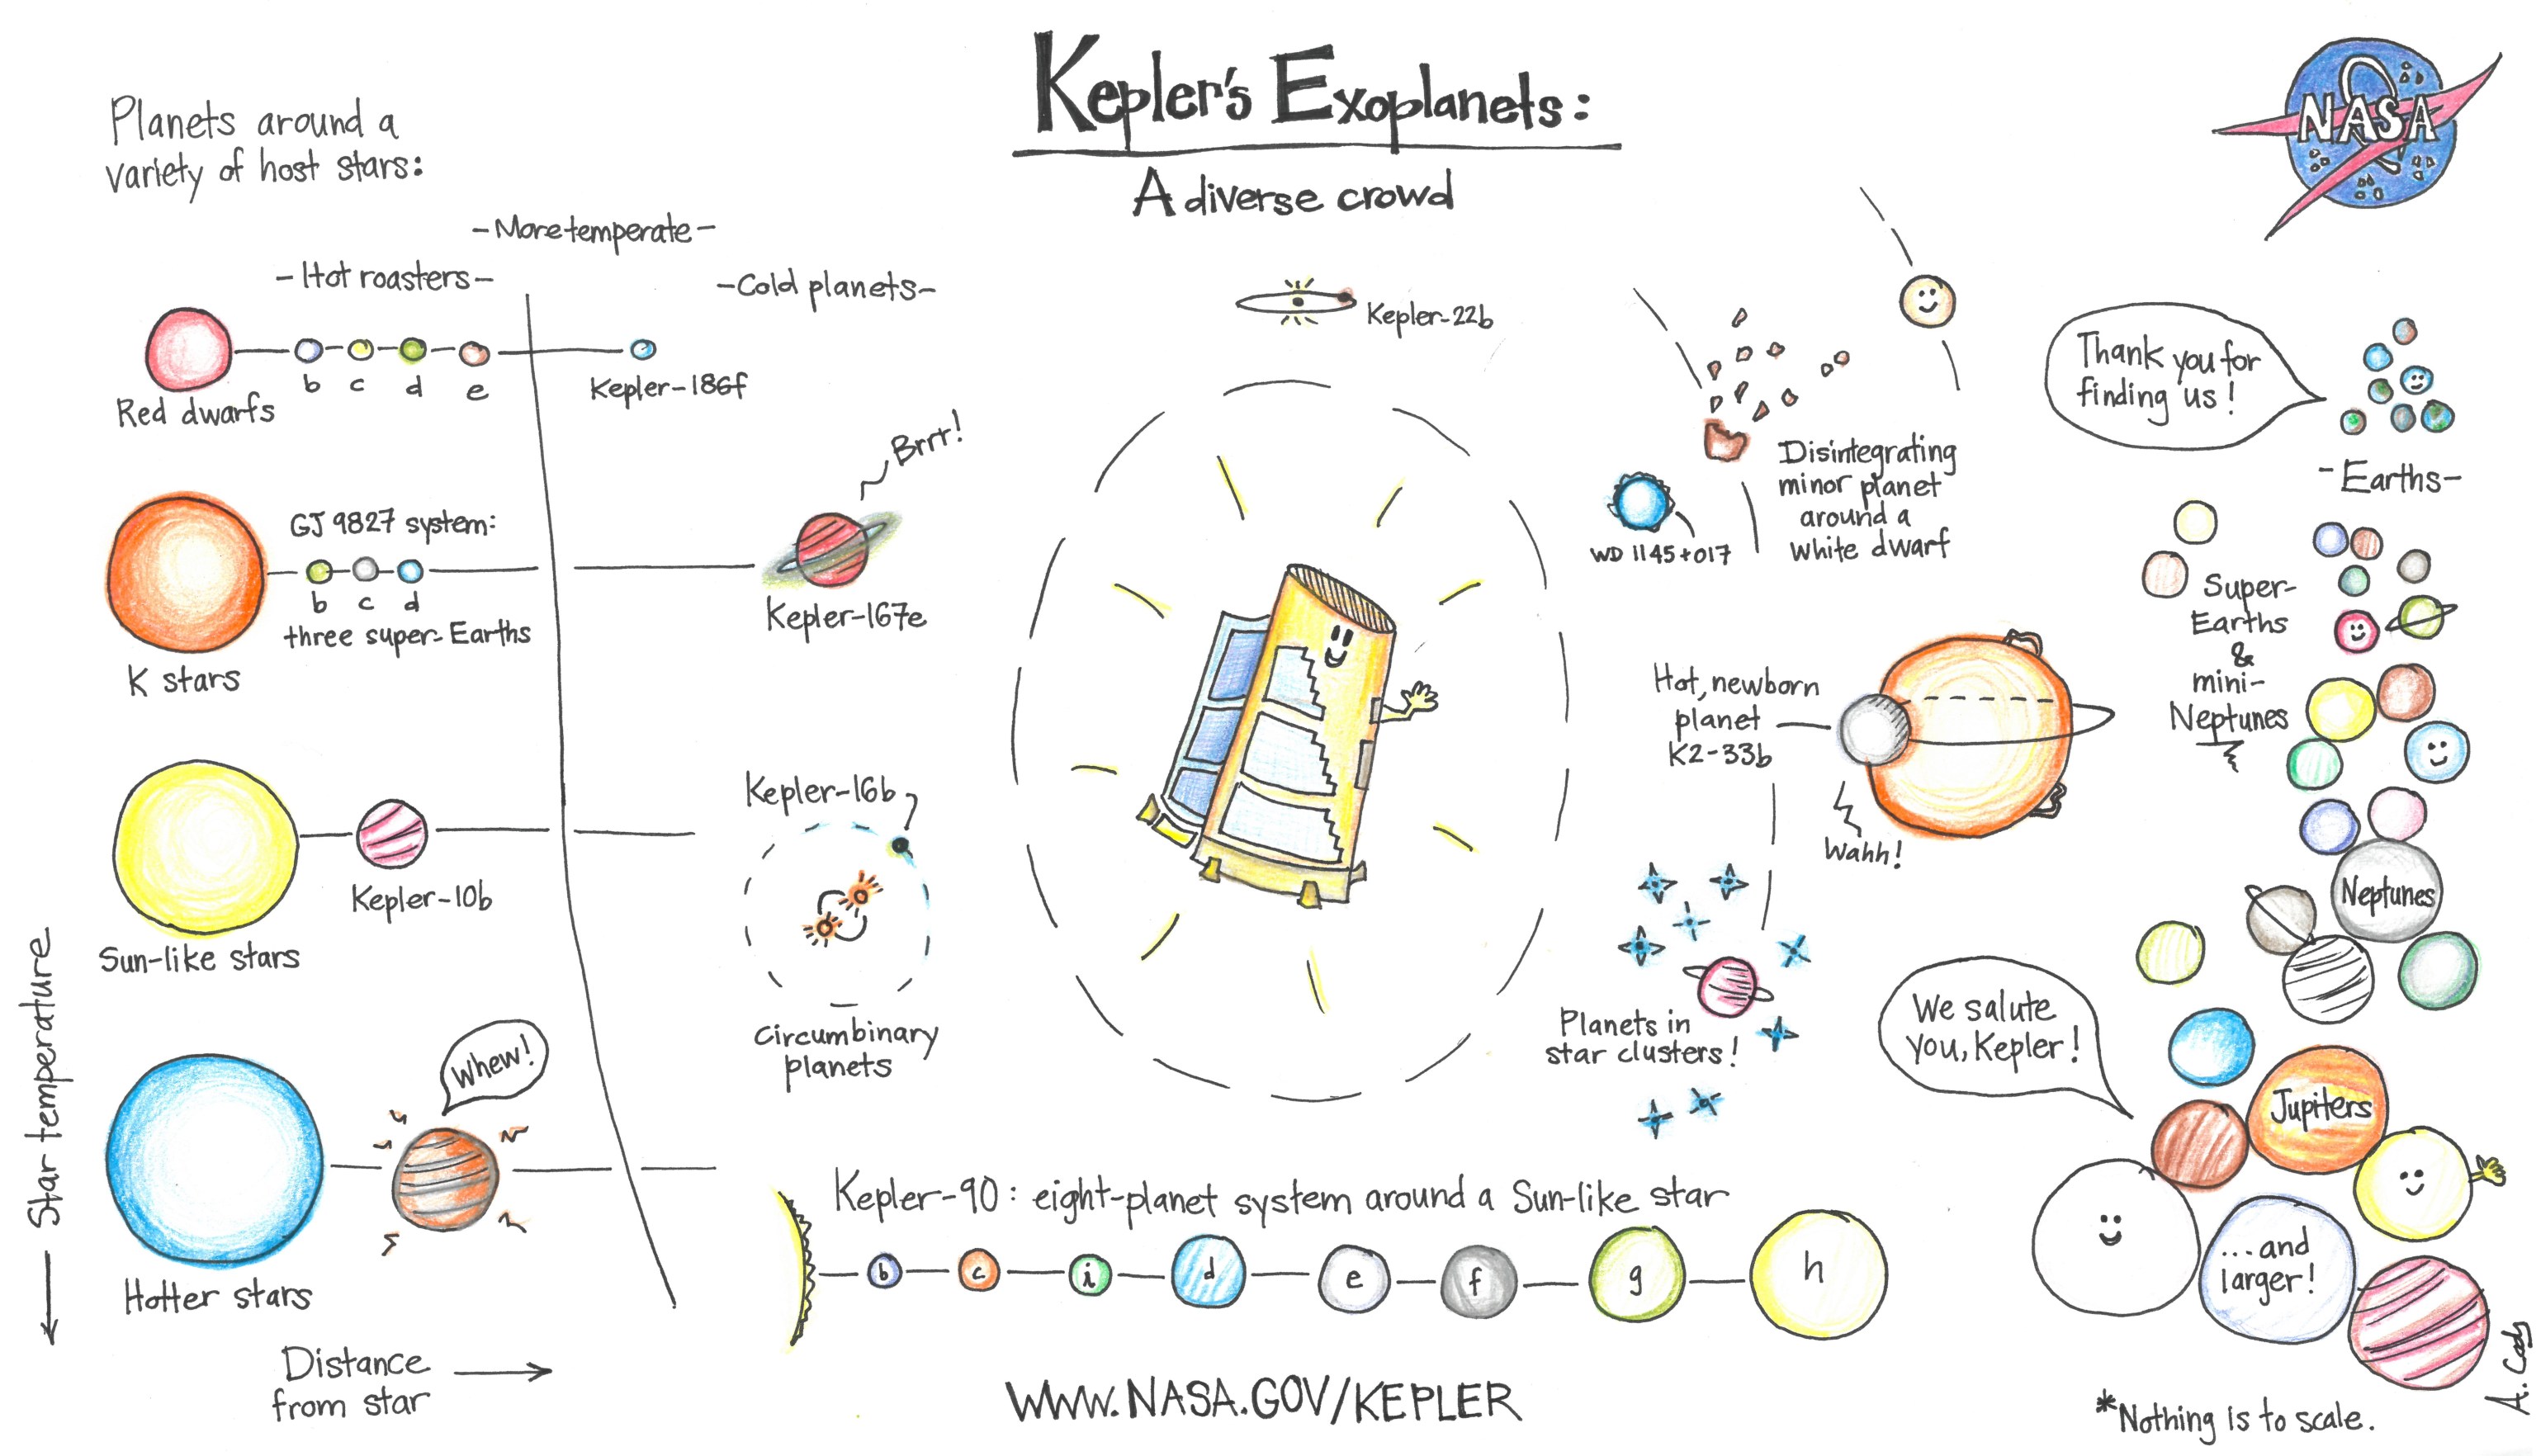 Kepler's Exoplanets:
A diverse crowd
NASA
Planets around a
variety of host stars:
-More temperate-
-Hot roasters-
-Cold planets-
b c d e
Kepler-186f
Red dwarfs
Brrr!
GJ 9827 system:
b c d
three super-Earths
Kepler-167e
K stars
Kepler-16b
Kepler-10b
Sun-like stars
Circumbinary
planets
Whew!
Hotter stars
Star temperature
Distance
from star
Kepler-22b
Disintegrating
minor planet
around a
white dwarf
WD 1145+017
Hot, newborn
planet
K2-33b
Wahh!
Planets in
star clusters!
Kepler-90: eight-planet system around a Sun-like star
b c i d e f g h
WWW.NASA.GOV/KEPLER
Thank you for
finding us!
-Earths-
Super-
Earths
&
mini-
Neptunes
Neptunes
We salute
you, Kepler!
Jupiters
...and
larger!
*Nothing is to scale.
A. Cady